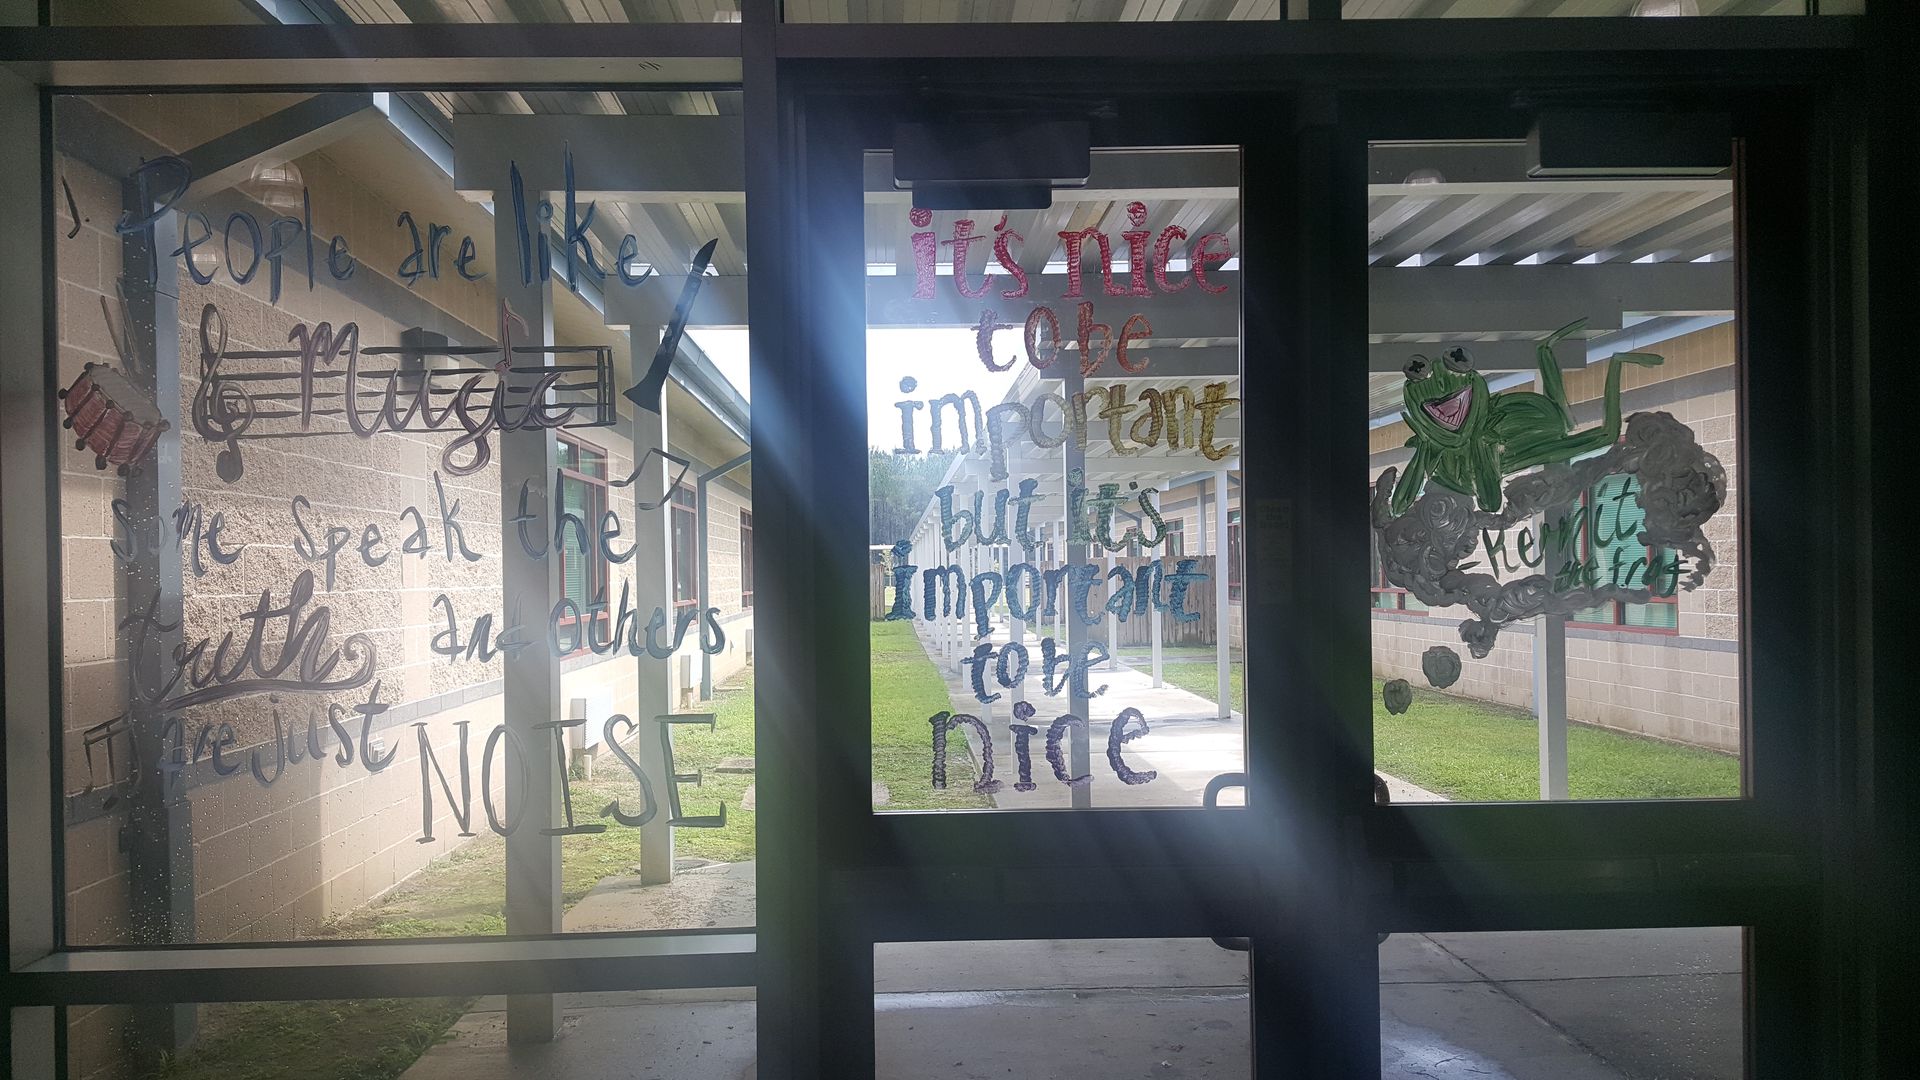 People are like
Music
some speak the
truth and others
are just NOISE
it's nice
to be
important
but it's
important
to be
nice
-Kermit
the frog